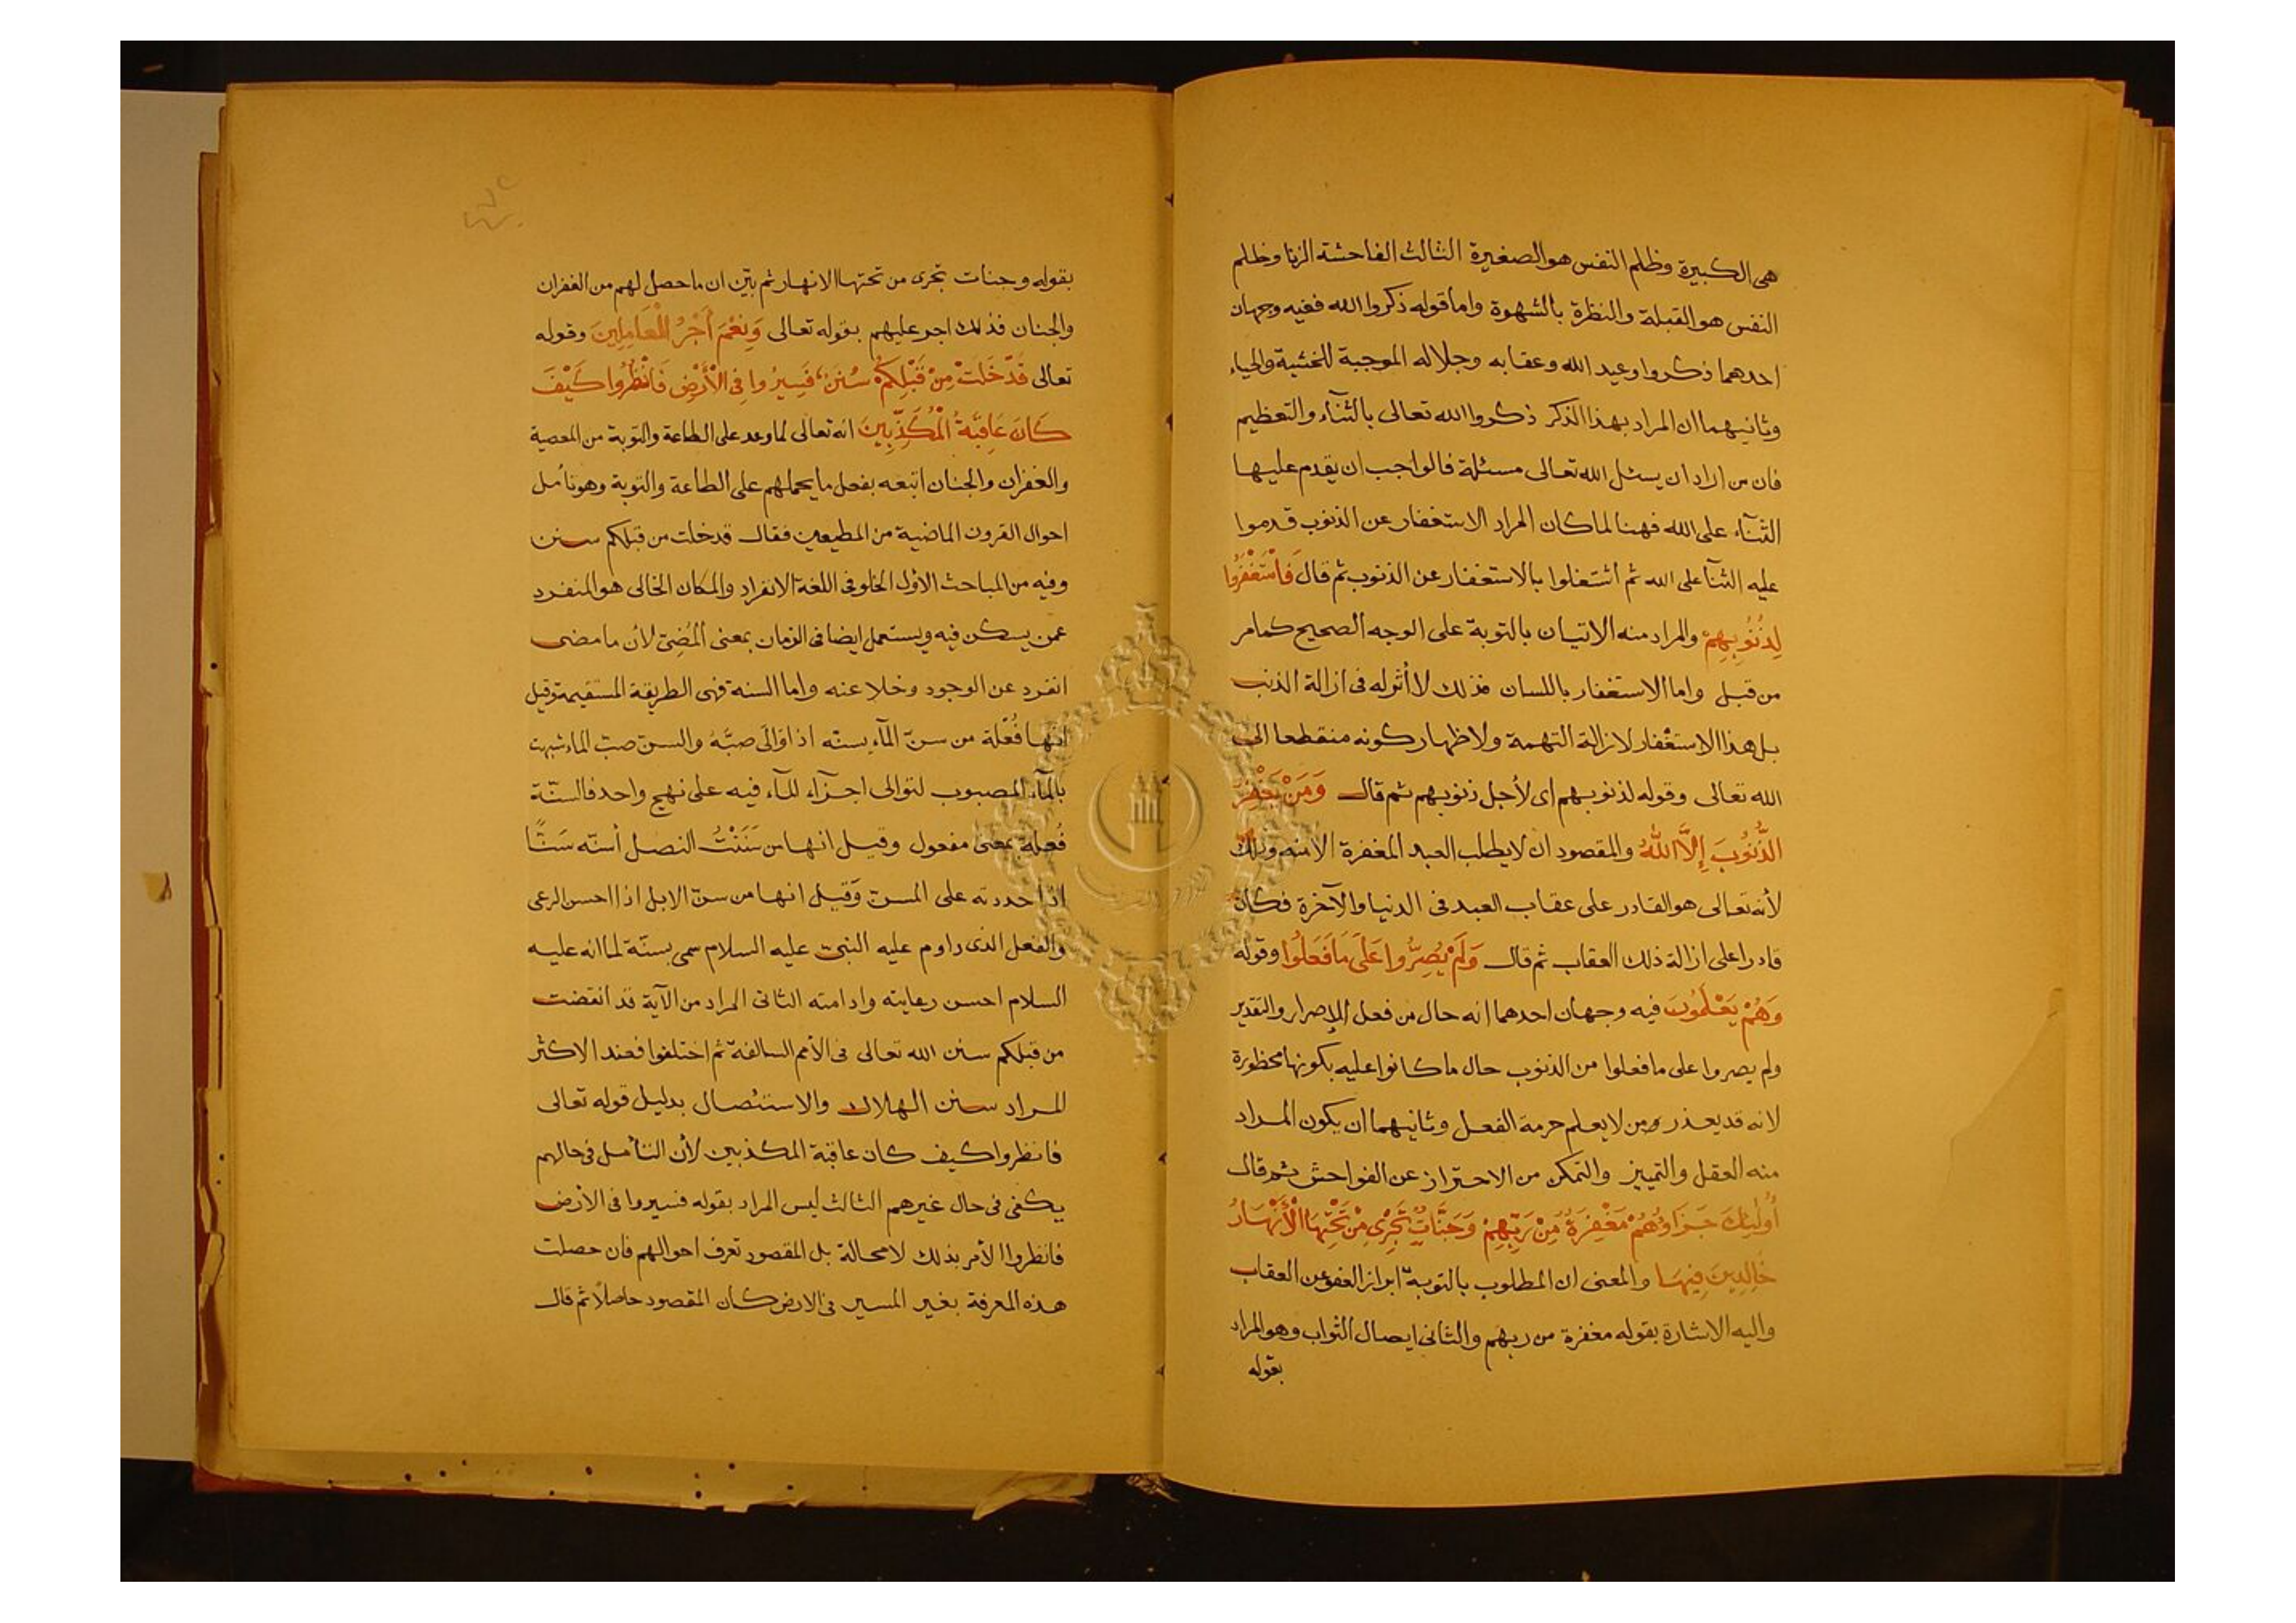 هى الكبيرة وظلم النفس هو الصغيرة الثالث الفاحشة الزنا وظلم
النفس هو القبلة والنظرة بالشهوة واما قوله ذكروا الله ففيه وجهان
احدهما ذكروا وعيد الله وعقابه وجلاله الموجبة للخشية والحياء
وثانيهما ان المراد بهذا الذكر ذكروا الله تعالى بالثنآء والتعظيم
فان من اراد ان يسئل الله تعالى مسئلة فالواجب ان يقدم عليها
الثنآء على الله فهنا لما كان المراد الاستغفار عن الذنوب قدموا
عليه الثنآ على الله ثم اشتغلوا بالاستغفار عن الذنوب ثم قال فَاسْتَغْفَرُوا
لِذُنُوبِهِمْ والمراد منه الاتيان بالتوبة على الوجه الصحيح كما مر
من قبل واما الاستغفار باللسان فذلك لا أثر له فى ازالة الذنب
بل هذا الاستغفار لازالة التهمة ولاظهار كونه منقطعا الى
الله تعالى وقوله لذنوبهم اى لأجل ذنوبهم ثم قال وَمَنْ يَغْفِرُ
الذُّنُوبَ إِلَّا اللهُ والمقصود ان لا يطلب العبد المغفرة الا منه وذلك
لأنه تعالى هو القادر على عقاب العبد فى الدنيا والآخرة فكان
قادرا على ازالة ذلك العقاب ثم قال وَلَمْ يُصِرُّوا عَلَى مَا فَعَلُوا وقوله
وَهُمْ يَعْلَمُونَ فيه وجهان احدهما انه حال من فعل الإصرار والتقدير
ولم يصروا على ما فعلوا من الذنوب حال ما كانوا عليه بكونها محظورة
لانه قد يعذر من لا يعلم حرمة الفعل وثانيهما ان يكون المراد
منه العقل والتمييز والتمكن من الاحتراز عن الفواحش ثم قال
أُولَئِكَ جَزَاؤُهُمْ مَغْفِرَةٌ مِنْ رَبِّهِمْ وَجَنَّاتٌ تَجْرِى مِنْ تَحْتِهَا الْأَنْهَارُ
خَالِدِينَ فِيهَا والمعنى ان المطلوب بالتوبة ابراز العفو عن العقاب
واليه الاشارة بقوله مغفرة من ربهم والثانى ايصال الثواب وهو المراد
بقوله
بقوله وجنات تجرى من تحتها الانهار ثم بيّن ان ما حصل لهم من الغفران
والجنان فذلك اجر عليهم بقوله تعالى وَنِعْمَ أَجْرُ الْعَامِلِينَ وقوله
تعالى قَدْ خَلَتْ مِنْ قَبْلِكُمْ سُنَنٌ فَسِيرُوا فِى الْأَرْضِ فَانْظُرُوا كَيْفَ
كَانَ عَاقِبَةُ الْمُكَذِّبِينَ انه تعالى لما وعد على الطاعة والتوبة من المعصية
والغفران والجنان اتبعه بفعل ما يحملهم على الطاعة والتوبة وهو تأمل
احوال القرون الماضية من المطيعين فقال قد خلت من قبلكم سنن
وفيه من المباحث الاول الخلو فى اللغة الانفراد والمكان الخالى هو المنفرد
عمن يسكن فيه ويستعمل ايضا فى الزمان بمعنى المُضِىّ لأن ما مضى
انفرد عن الوجود وخلا عنه واما السنة فهى الطريقة المستقيمة وقيل
انها فُعْلَة من سنّ المآء يسنّه اذا وَالَى صبَّهُ والسنّ صبّ الماء شبهت
بالمآء المصبوب لتوالى اجزآء المآء فيه على نهج واحد فالسنّة
فُعلة بمعنى مفعول وقيل انها من سَنَنْتُ النصل أسنّه سَنًّا
اذا حددته على المسنّ وَقيل انها من سنّ الابل اذا احسن الرعى
والفعل الذى داوم عليه النبىّ عليه السلام سمى بسنّة لما انه عليه
السلام احسن رعايته وادامته الثانى المراد من الآية قد انقضت
من قبلكم سنن الله تعالى فى الأمم السالفة ثم اختلفوا فعند الاكثر
المراد سنن الهلاك والاستئصال بدليل قوله تعالى
فانظروا كيف كان عاقبة المكذبين لأن التأمل فى حالهم
يكفى فى حال غيرهم الثالث ليس المراد بقوله فسيروا فى الأرض
فانظروا الأمر بذلك لا محالة بل المقصود تعرف احوالهم فان حصلت
هذه المعرفة بغير المسير فى الارض كان المقصود حاصلاً ثم قال